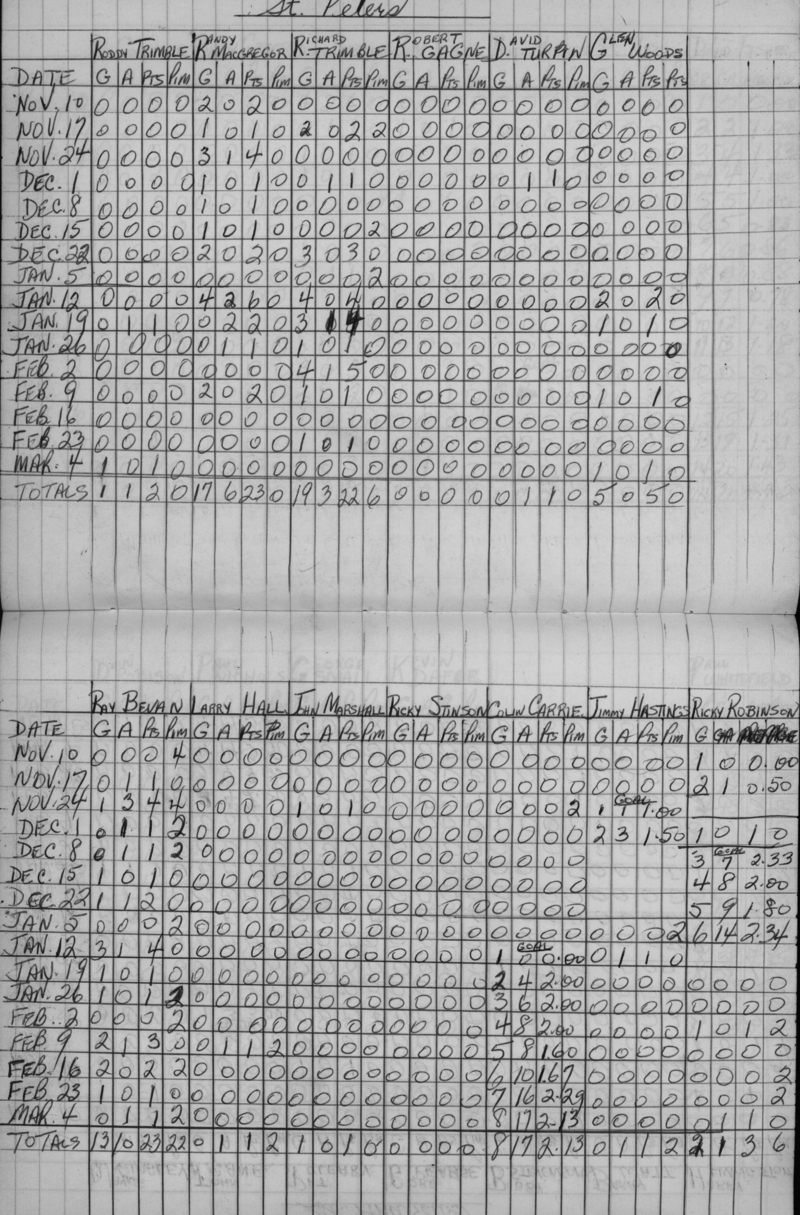 St. Peters
RODDY TRIMBLE RANDY MACGREGOR RICHARD TRIMBLE ROBERT GAGNE DAVID TURPIN GLEN WOODS
DATE G A Pts Pim G A Pts Pim G A Pts Pim G A Pts Pim G A Pts Pim G A Pts Pts
NOV. 10 0 0 0 0 2 0 2 0 0 0 0 0 0 0 0 0 0 0 0 0 0 0 0 0
NOV. 17 0 0 0 0 1 0 1 0 2 0 2 2 0 0 0 0 0 0 0 0 0 0 0 0
NOV. 24 0 0 0 0 3 1 4 0 0 0 0 0 0 0 0 0 0 0 0 0 0 0 0 0
DEC. 1 0 0 0 0 1 0 1 0 0 1 1 0 0 0 0 0 0 1 1 0 0 0 0 0
DEC. 8 0 0 0 0 1 0 1 0 0 0 0 0 0 0 0 0 0 0 0 0 0 0 0 0
DEC. 15 0 0 0 0 1 0 1 0 0 0 0 2 0 0 0 0 0 0 0 0 0 0 0 0
DEC. 22 0 0 0 0 2 0 2 0 3 0 3 0 0 0 0 0 0 0 0 0 0 0 0 0
JAN. 5 0 0 0 0 0 0 0 0 0 0 0 2 0 0 0 0 0 0 0 0 0 0 0 0
JAN. 12 0 0 0 0 4 2 6 0 4 0 4 0 0 0 0 0 0 0 0 0 2 0 2 0
JAN. 19 0 1 1 0 0 2 2 0 3 1 4 0 0 0 0 0 0 0 0 0 1 0 1 0
JAN. 26 0 0 0 0 0 1 1 0 1 0 1 0 0 0 0 0 0 0 0 0 0 0 0 0
FEB. 2 0 0 0 0 0 0 0 0 4 1 5 0 0 0 0 0 0 0 0 0 0 0 0 0
FEB. 9 0 0 0 0 2 0 2 0 1 0 1 0 0 0 0 0 0 0 0 0 1 0 1 0
FEB. 16 0 0 0 0 0 0 0 0 0 0 0 0 0 0 0 0 0 0 0 0 0 0 0 0
FEB. 23 0 0 0 0 0 0 0 0 1 0 1 0 0 0 0 0 0 0 0 0 0 0 0 0
MAR. 4 1 0 1 0 0 0 0 0 0 0 0 0 0 0 0 0 0 0 0 0 1 0 1 0
TOTALS 1 1 2 0 17 6 23 0 19 3 22 6 0 0 0 0 0 1 1 0 5 0 5 0
RAY BEVAN LARRY HALL JOHN MARSHALL RICKY STINSON COLIN CARRIE JIMMY HASTINGS RICKY ROBINSON
DATE G A Pts Pim G A Pts Pim G A Pts Pim G A Pts Pim G A Pts Pim G A Pts Pim G GA
NOV. 10 0 0 0 4 0 0 0 0 0 0 0 0 0 0 0 0 0 0 0 0 0 0 0 0 1 0 0.00
NOV. 17 0 1 1 0 0 0 0 0 0 0 0 0 0 0 0 0 0 0 0 0 0 0 0 0 2 1 0.50
NOV. 24 1 3 4 4 0 0 0 0 1 0 1 0 0 0 0 0 0 0 0 2 1 GOAL
DEC. 1 0 1 1 2 0 0 0 0 0 0 0 0 0 0 0 0 0 0 0 0 2 3 1.50 1 0 1 0
DEC. 8 0 1 1 2 0 0 0 0 0 0 0 0 0 0 0 0 0 0 0 0 3 GOAL 7 2.33
DEC. 15 1 0 1 0 0 0 0 0 0 0 0 0 0 0 0 0 0 0 0 0 4 8 2.00
DEC. 22 1 1 2 0 0 0 0 0 0 0 0 0 0 0 0 0 0 0 0 0 5 9 1.80
JAN. 5 0 0 0 2 0 0 0 0 0 0 0 0 0 0 0 0 0 0 0 0 0 0 0 2 6 14 2.34
JAN. 12 3 1 4 0 0 0 0 0 0 0 0 0 0 0 0 0 1 GOAL 0 0.00 0 1 1 0
JAN. 19 1 0 1 0 0 0 0 0 0 0 0 0 0 0 0 0 2 4 2.00 0 0 0 0 0 0 0 0
JAN. 26 1 0 1 2 0 0 0 0 0 0 0 0 0 0 0 0 3 6 2.00 0 0 0 0 0 0 0 0
FEB. 2 0 0 0 2 0 0 0 0 0 0 0 0 0 0 0 0 4 8 2.00 0 0 0 0 1 0 1 2
FEB 9 2 1 3 0 0 1 1 2 0 0 0 0 0 0 0 0 5 8 1.60 0 0 0 0 0 0 0 0
FEB. 16 2 0 2 2 0 0 0 0 0 0 0 0 0 0 0 0 6 10 1.67 0 0 0 0 0 0 0 2
FEB. 23 1 0 1 0 0 0 0 0 0 0 0 0 0 0 0 0 7 16 2.29 0 0 0 0 0 0 0 2
MAR. 4 0 1 1 2 0 0 0 0 0 0 0 0 0 0 0 0 8 17 2.13 0 0 0 0 0 1 1 0
TOTALS 13 10 23 22 0 1 1 2 1 0 1 0 0 0 0 0 8 17 2.13 0 1 1 2 2 1 3 6